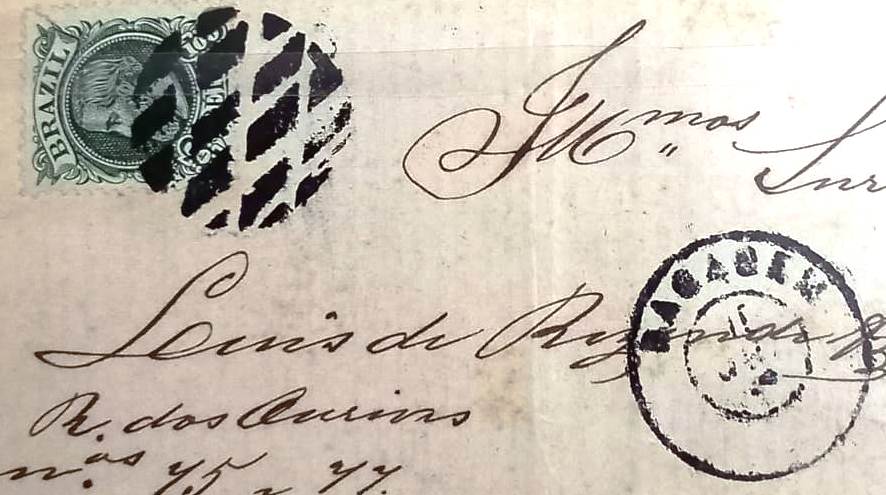 BRAZIL
Illmos Snr
Luis de Rezende
R. dos Ourives
nos 75 e 77.